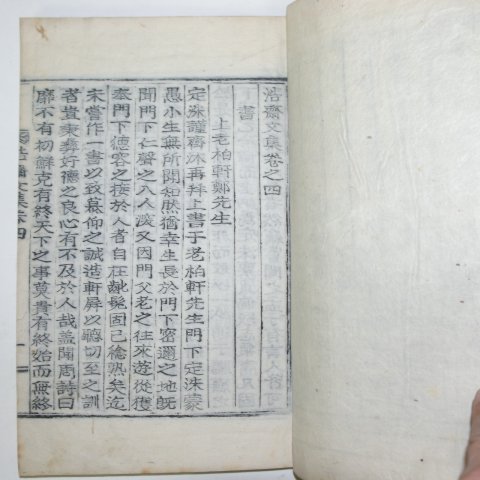 浩齋文集卷之四
書
上老柏軒鄭先生
定洙謹齋沐再拜上書于老柏軒先生門下定洙蒙
愚小生無所聞知然猶幸生長於門下密邇之地旣
聞門下仁聲之入人深又因門父老之往來遊從獲
奉門下德容之接於人者自在齠髫固已稔熟矣迄
未嘗作一書以致慕仰之誠造軒屛以聽切至之訓
者豈秉彛好德之良心有不及於人哉盖聞周詩曰
靡不有初鮮克有終天下之事莫貴有終始而無終
浩齋文集卷四
一